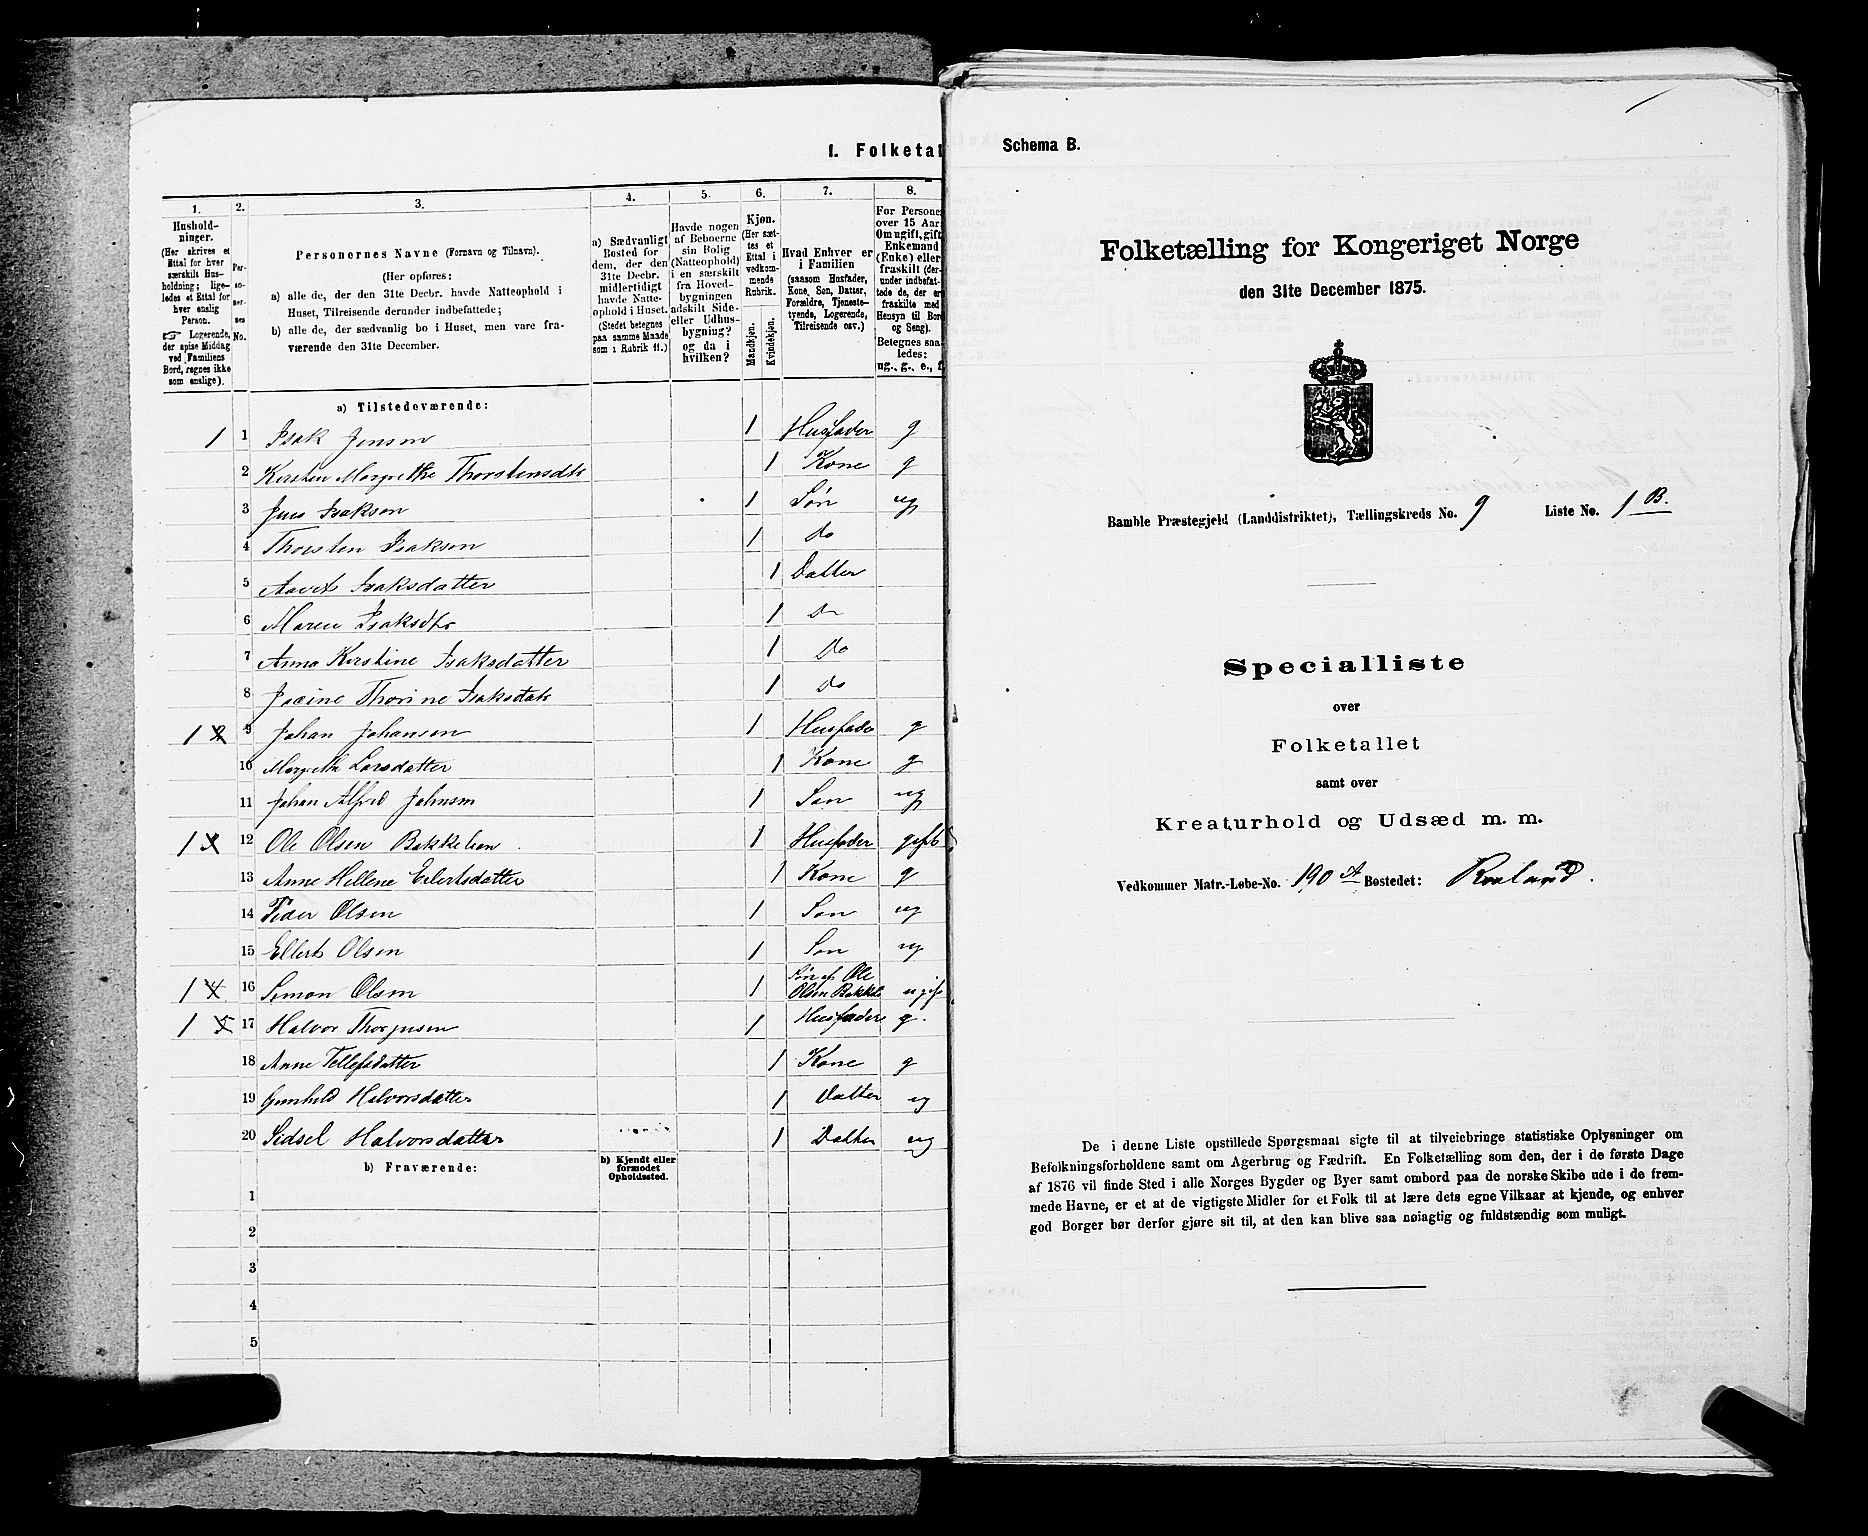 I. Folketal
1.
2.
3.
4.
5.
6.
7.
8.
Hushold-
ninger.
(Her skrives et
Ettal for hver
særskilt Hus-
holdning; lige-
ledes et Ettal for
hver enslig
Person.
☞ Logerende,
der spise Middag
ved Familiens
Bord, regnes ikke
som enslige).
Per-
so-
ner-
nes
No.
Personernes Navne (Fornavn og Tilnavn).
(Her opføres:
a) alle de, der den 31te Decbr. havde Natteophold i
Huset, Tilreisende derunder indbefattede;
b) alle de, der sædvanlig bo i Huset, men vare fra-
værende den 31te December.
a) Sædvanligt
Bosted for
dem, der den
31te Decbr.
midlertidigt
havde Natte-
ophold i Huset.
(Stedet betegnes
paa samme Maade
som i Rubrik 11.)
Havde nogen
af Beboerne
sin Bolig
(Natteophold)
i en særskilt
fra Hoved-
bygningen
adskilt Side-
eller Udhus-
bygning?
og da i
hvilken?
Kjøn.
(Her sæt-
tes et
Ettal i
vedkom-
mende
Rubrik.
Mandkjøn.
Kvindekjøn.
Hvad Enhver er
i Familien
(saasom Husfader,
Kone, Søn, Datter,
Forældre, Tjeneste-
tyende, Logerende,
Tilreisende osv.)
For Persone
over 15 Aar
Om ugift, gift
Enkemand
(Enke) eller
fraskilt (der-
under indbefat-
tede de, der er
fraskilte med
Hensyn til Bor
og Seng).
Betegnes saa
ledes:
ug., g., e., f.
a) Tilstedeværende:
1 1 Isak Jensen 1 Husfader g
2 Kirsten Margrethe Thorstensdtr 1 Kone g
3 Jens Isaksen 1 Søn ug
4 Thorsten Isaksen 1 Do
5 Isaksdatter 1 Datter
6 Maren Isaksdtr 1 Do
7 Anna Kirstine Isaksdatter 1 Do
8 Thorine Isaksdatr 1 Do
1 2 9 Johan Johansen 1 Husfader g
10 Margreth Larsdatter 1 Kone g
11 Johan Alfred Johnsen 1 Søn ug
1 3 12 Ole Olsen Bakkelien 1 Husfader gift
13 Anne Hellene Eilertsdatter 1 Kone g
14 Peder Olsen 1 Søn ug
15 Ellert Olsen 1 Søn ug
1 4 16 Simon Olsen 1 Søn af Ole
Olsen Bakkel. ugift
1 5 17 Halvor Thorjusen 1 Husfader g.
18 Anne Tellefsdatter 1 Kone g
19 Gunhild Halvorsdatter 1 Datter ug
20 Sidsel Halvorsdatter 1 Datter ug
b) Fraværende:
b) Kjendt eller
formodet
Opholdssted.
1
2
3
4
5
Schema B.
Folketælling for Kongeriget Norge
den 31te December 1875.
Bamble Præstegjeld (Landdistriktet), Tællingskreds No. 9 Liste No. 1 B.
Specialliste
over
Folketallet
samt over
Kreaturhold og Udsæd m. m.
Vedkommer Matr.-Løbe-No. 190 A Bostedet:
De i denne Liste opstillede Spørgsmaal sigte til at tilveiebringe statistiske Oplysninger om
Befolkningsforholdene samt om Agerbrug og Fædrift. En Folketælling som den, der i de første Dage
af 1876 vil finde Sted i alle Norges Bygder og Byer samt ombord paa de norske Skibe ude i de frem-
mede Havne, er et at de vigtigste Midler for et Folk til at lære dets egne Vilkaar at kjende, og enhver
god Borger bør derfor gjøre sit til, at den kan blive saa nøiagtig og fuldstændig som muligt.